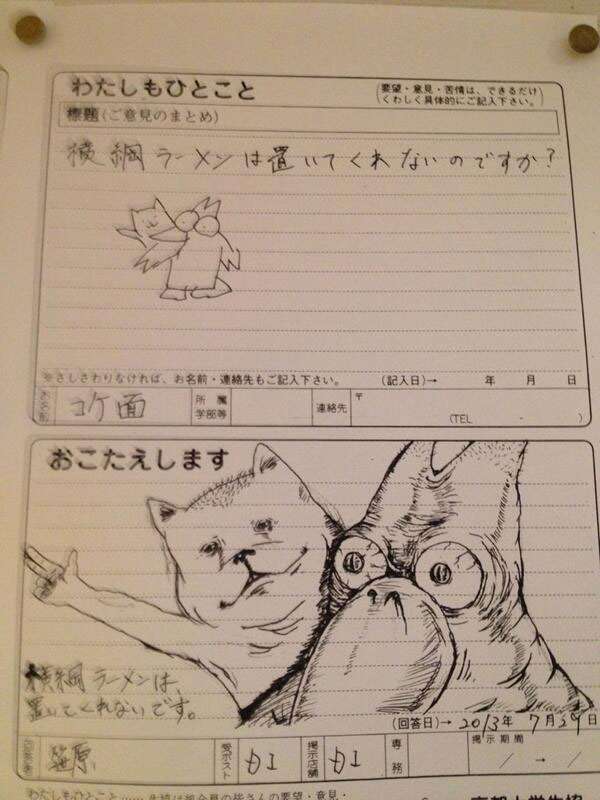 わたしもひとこと
(要望・意見・苦情は、できるだけ
くわしく具体的にご記入下さい。)
標題(ご意見のまとめ)
横綱ラーメンは置いてくれないのですか?
※さしさわりなければ、お名前・連絡先もご記入下さい。 (記入日)→ 年 月 日
お名前 コケ面 所属 学部等 連絡先 〒
(TEL - )
おこたえします
横綱ラーメンは、
置いてくれないです。
(回答日)→ 2013年 7月29日
笹原 受ポスト カエ 掲示店舗 カエ 専務 掲示期間
/ → /
わたしもひとこと…